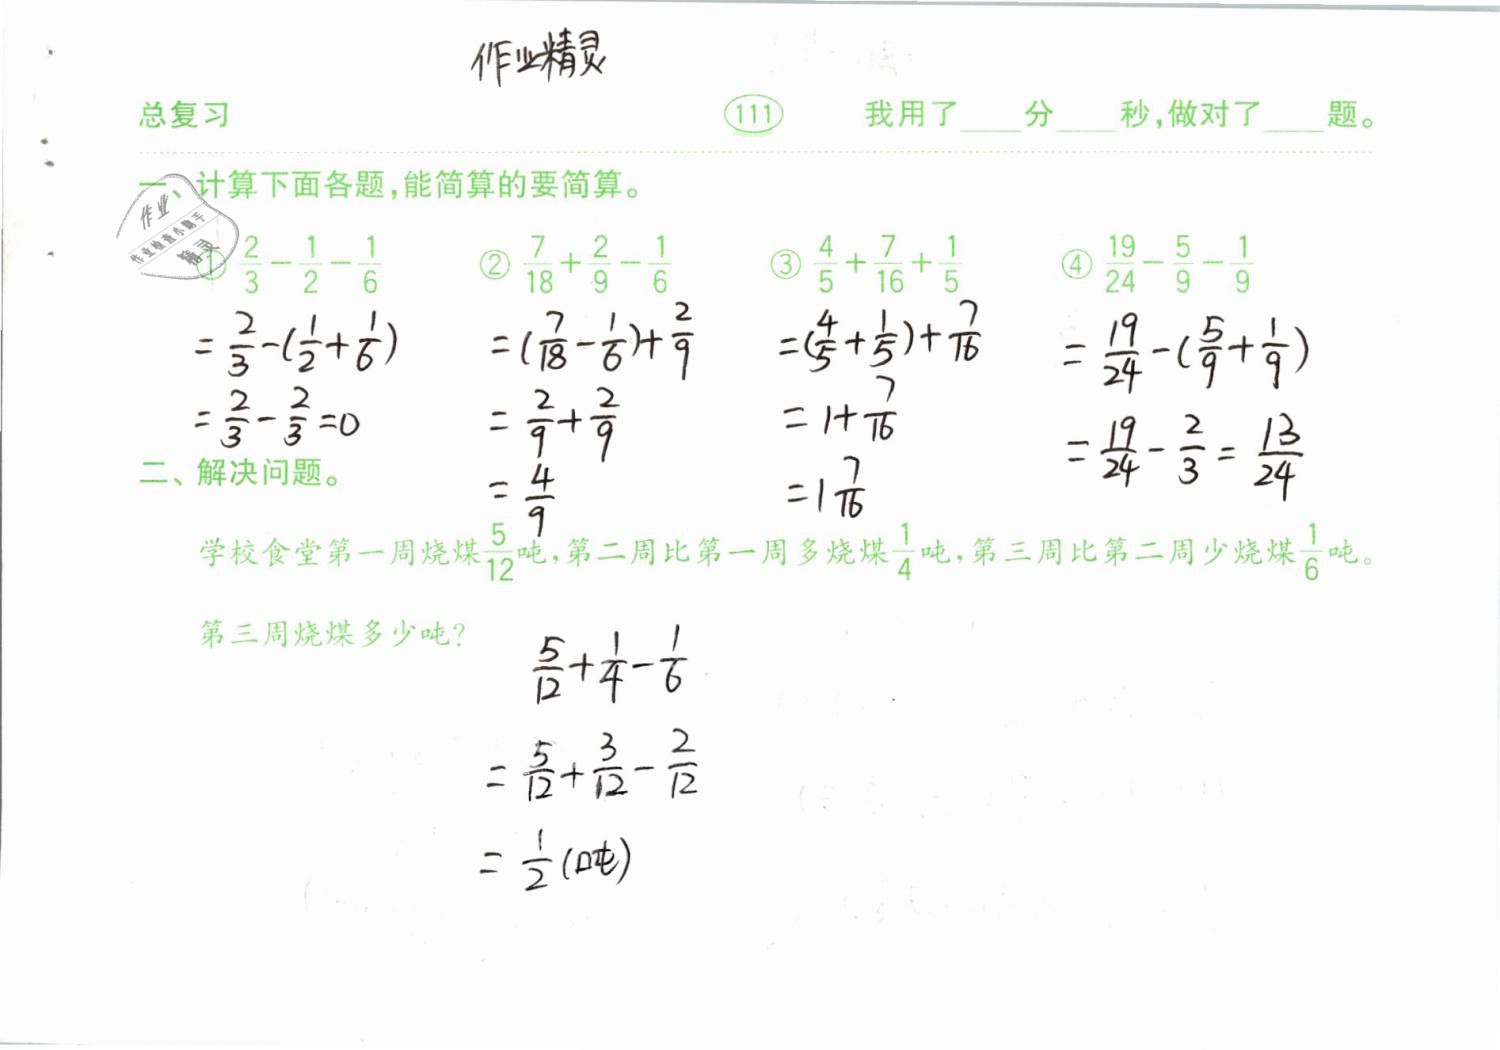 作业精灵
总复习 111 我用了____分____秒,做对了____题。
一、计算下面各题,能简算的要简算。
作业
作业检查小助手
精灵
① 2/3 - 1/2 - 1/6 ② 7/18 + 2/9 - 1/6 ③ 4/5 + 7/16 + 1/5 ④ 19/24 - 5/9 - 1/9
= 2/3 - (1/2 + 1/6) = (7/18 - 1/6) + 2/9 = (4/5 + 1/5) + 7/16 = 19/24 - (5/9 + 1/9)
= 2/3 - 2/3 = 0 = 2/9 + 2/9 = 1 + 7/16 = 19/24 - 2/3 = 13/24
二、解决问题。 = 4/9 = 1 7/16
学校食堂第一周烧煤5/12吨,第二周比第一周多烧煤1/4吨,第三周比第二周少烧煤1/6吨。
第三周烧煤多少吨?
5/12 + 1/4 - 1/6
= 5/12 + 3/12 - 2/12
= 1/2 (吨)